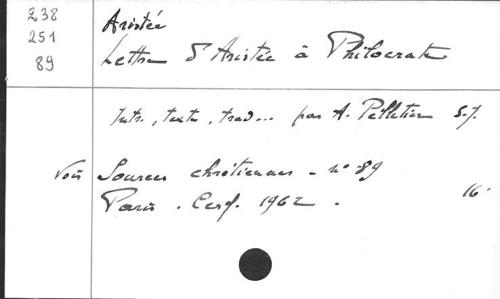 238
251
89
Aristée
Lettre d'Aristée à Philocrate
Intr., texte, trad... par A. Pelletier S.J.
Voir Sources chrétiennes - n° 89
Paris. Cerf. 1962. 16°